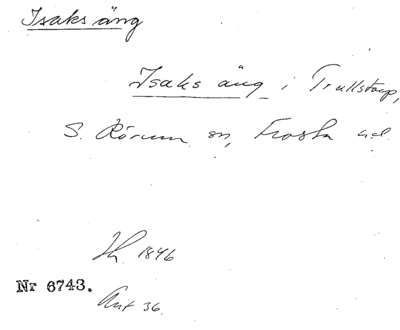 Isaks äng
Isaks äng i Trullstorp,
S. Rörum sn, Frosta hd
1846
Nr 6743.
36.